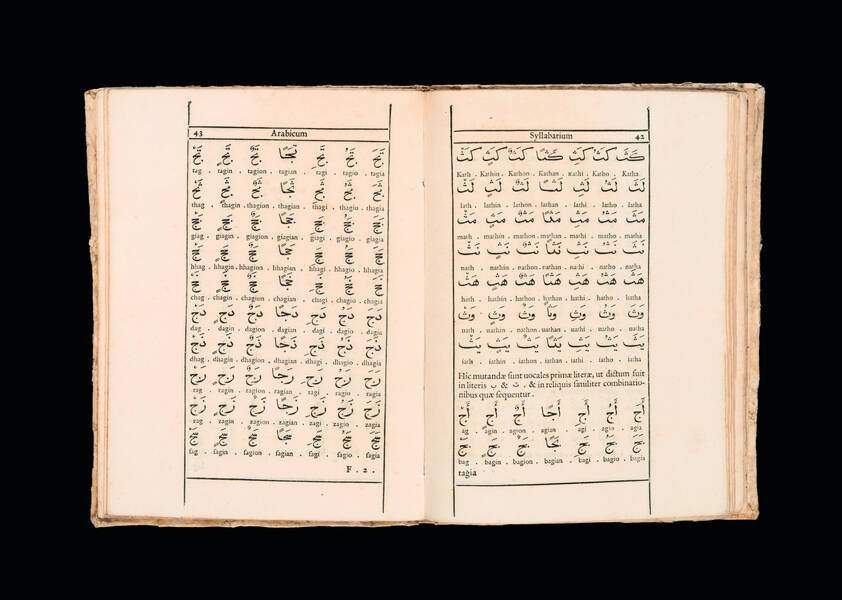 Syllabarium 42
كَثَ كَثُ كَثِ كَثًا كَثٌ كَثٍ كَثْ
Kath . Kathin . Kathon . Kathan . Kathi . Katho . Katha
لَثَ لَثُ لَثِ لَثًا لَثٌ لَثٍ لَثْ
lath . lathin . lathon . lathan . lathi . latho . latha
مَثَ مَثُ مَثِ مَثًا مَثٌ مَثٍ مَثْ
math . mathin . mathon . mathan . mathi . matho . matha
نَثَ نَثُ نَثِ نَثًا نَثٌ نَثٍ نَثْ
nath . nathin . nathon . nathan . nathi . natho . natha
هَثَ هَثُ هَثِ هَثًا هَثٌ هَثٍ هَثْ
hath . hathin . hathon . hathan . hathi . hatho . hatha
وَثَ وَثُ وَثِ وَثًا وَثٌ وَثٍ وَثْ
uath . uathin . uathon . uathan . uathi . uatho . uatha
يَثَ يَثُ يَثِ يَثًا يَثٌ يَثٍ يَثْ
iath . iathin . iathon . iathan . iathi . iatho . iatha
Hic mutandæ sunt uocales primæ literæ, ut dictum fuit
in literis ب & ت . & in reliquis similiter combinatio-
nibus quæ sequentur.
أَجَ أَجُ أَجِ أَجًا أَجٌ أَجٍ أَجْ
ag . agin . agion . agian . agi . agio . agia
بَجَ بَجُ بَجِ بَجًا بَجٌ بَجٍ بَجْ
bag . bagin . bagion . bagian . bagi . bagio . bagia
tagia
43 Arabicum
تَجَ تَجُ تَجِ تَجًا تَجٌ تَجٍ تَجْ
tag . tagin . tagion . tagian . tagi . tagio . tagia
ثَجَ ثَجُ ثَجِ ثَجًا ثَجٌ ثَجٍ ثَجْ
thag . thagin . thagion . thagian . thagi . thagio . thagia
جَجَ جَجُ جَجِ جَجًا جَجٌ جَجٍ جَجْ
giag . giagin . giagion . giagian . giagi . giagio . giagia
حَجَ حَجُ حَجِ حَجًا حَجٌ حَجٍ حَجْ
hhag . hhagin . hhagion . hhagian . hhagi . hhagio . hhagia
خَجَ خَجُ خَجِ خَجًا خَجٌ خَجٍ خَجْ
chag . chagin . chagion . chagian . chagi . chagio . chagia
دَجَ دَجُ دَجِ دَجًا دَجٌ دَجٍ دَجْ
dag . dagin . dagion . dagian . dagi . dagio . dagia
ذَجَ ذَجُ ذَجِ ذَجًا ذَجٌ ذَجٍ ذَجْ
dhag . dhagin . dhagion . dhagian . dhagi . dhagio . dhagia
رَجَ رَجُ رَجِ رَجًا رَجٌ رَجٍ رَجْ
rag . ragin . ragion . ragian . ragi . ragio . ragia
زَجَ زَجُ زَجِ زَجًا زَجٌ زَجٍ زَجْ
zag . zagin . zagion . zagian . zagi . zagio . zagia
سَجَ سَجُ سَجِ سَجًا سَجٌ سَجٍ سَجْ
sag . sagin . sagion . sagian . sagi . sagio . sagia
F . 2 .